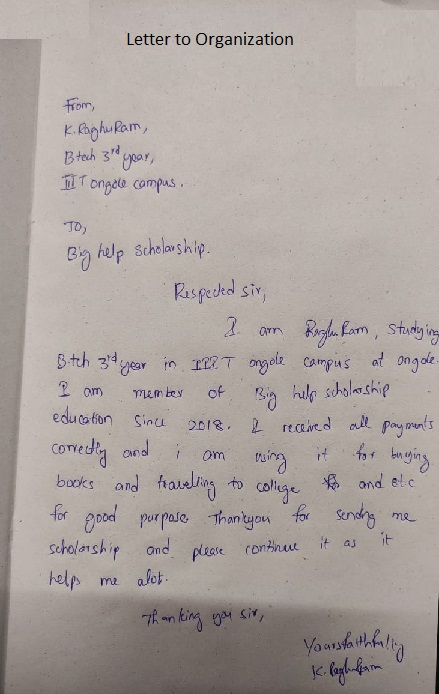 Letter to Organization
From,
K. Raghu Ram,
B tech 3rd year,
IIIT ongole campus.
To,
Big help scholarship.
Respected sir,
I am Raghu Ram, studying
B-tch 3rd year in IIIT ongole campus at ongole.
I am member of Big help scholarship
education since 2018. I received all payments
correctly and i am using it for buying
books and travelling to college and etc
for good purpose Thankyou for sending me
scholarship and please continue it as it
helps me alot.
Thanking you sir,
Yoursfaithfully
K. Raghu Ram